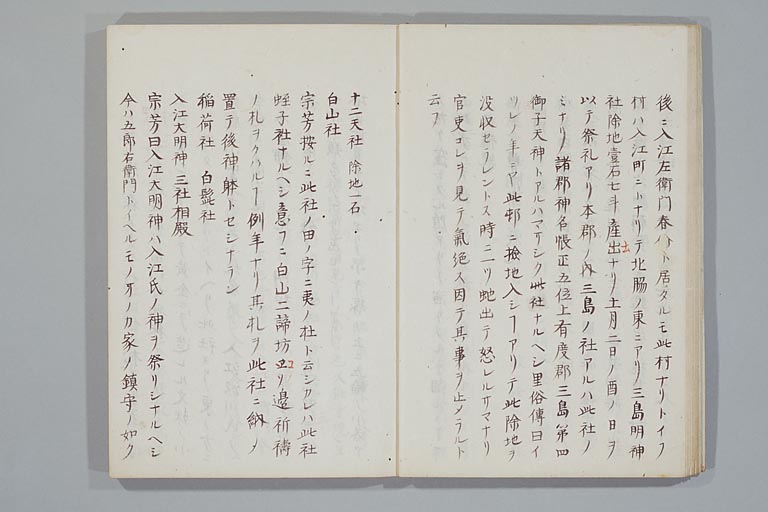 後ニ入江左衛門春ハト居タルモ此村ナリトイフ
村ハ入江町ニトナリテ北脇ノ東ニアリ三島明神
社除地壹石七斗産出土ナリ十月二日ノ酉ノ日ヲ
以テ祭礼アリ本郡ノ内三島ノ社アルハ此社ノ
ミナリ諸郡神名帳正五位上有度郡三島第四
御子天神トアルハマサシク此社ナルヘシ里俗傳曰イ
ツレノ年ニヤ此邨ニ撿地入シヿアリテ此除地ヲ
没収セラレントス時ニ一ツ虵出テ怒レルサマナリ
官吏コレヲ見テ氣絶ス因テ其事ヲ止メラルト
云フ
十二天社 除地一石
白山社
宗芳按ルニ此社ノ田ノ字ニ夷ノ社ト云シカレハ此社
蛭子社ナルヘシ意フニ白山二諦坊ヨリ邊祈禱
ノ札ヲクハルヿ例年ナリ其札ヲ此社ニ納メ
置テ後神躰トセシナラン
稲荷社 白髭社
入江大明神 三社相殿
宗芳曰入江大明神ハ入江氏ノ神ヲ祭リシナルヘシ
今ハ五郎右衛門トイヘルモノヽカ家ノ鎮守ノ如ク